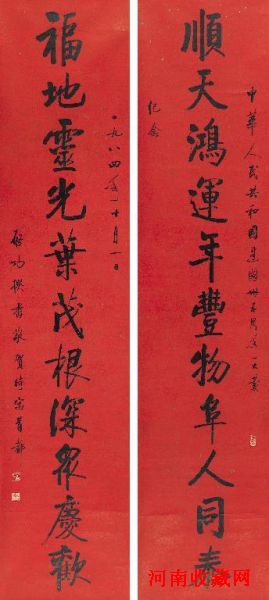 中華人民共和國建國卅五周年大慶
順天鴻運年豐物阜人同寿
紀念
一九八四年十月一日
福地靈光葉茂根深眾慶歡
啟功撰書敬賀時客首都
河南收藏网